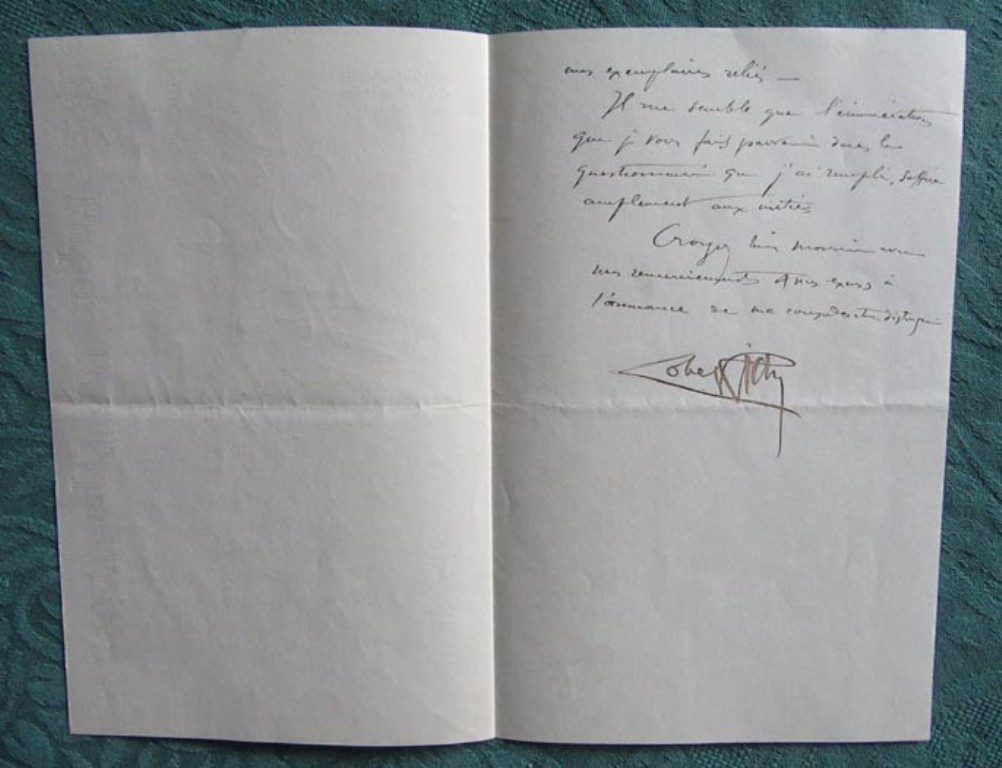 mes exemplaires reliés —
Il me semble que l'énumération
que je vous fais parvenir dans le
questionnaire que j'ai rempli, suffira
amplement aux
Croyez bien monsieur avec
mes remerciements à
l'assurance de ma considération distinguée
Robert